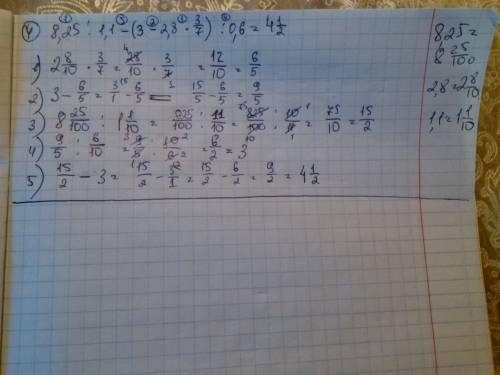 ④ 8,25 : 1,1 - (3 - 2,8 · 3/7) : 0,6 = 4 1/2
1) 2 8/10 · 3/7 = 28/10 · 3/7 = 12/10 = 6/5
2) 3 - 6/5 = 3/1 - 6/5 = 15/5 - 6/5 = 9/5
3) 8 25/100 : 1 1/10 = 825/100 : 11/10 = 825/100 · 10/11 = 75/10 = 15/2
4) 9/5 : 6/10 = 9/5 · 10/6 = 6/2 = 3
5) 15/2 - 3 = 15/2 - 3/1 = 15/2 - 6/2 = 9/2 = 4 1/2
8,25 =
8 25/100
2,8 = 28/10
1,1 = 1 1/10